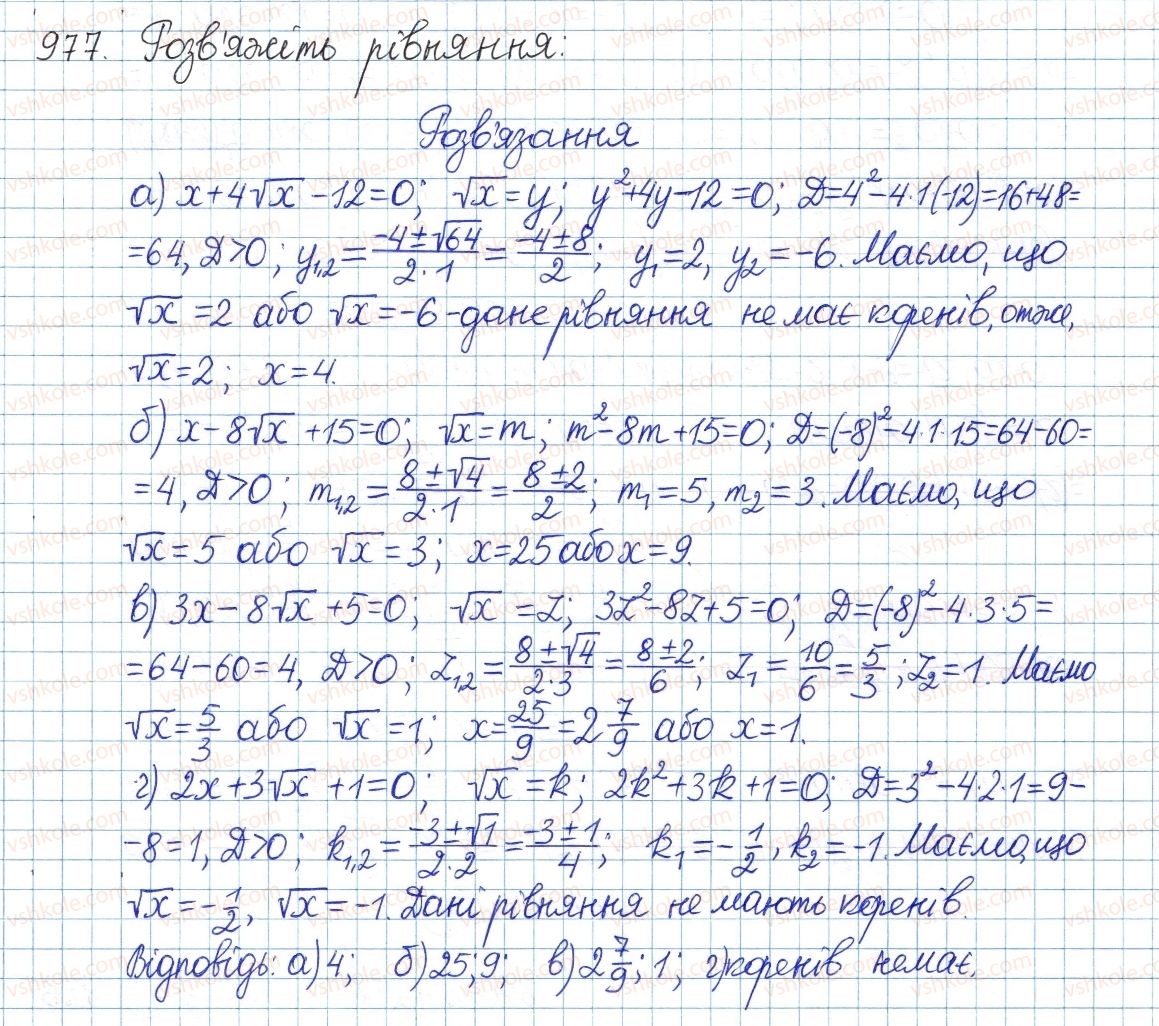 977. Розв'яжіть рівняння:
Розв'язання
а) x+4√x -12=0; √x=y; y²+4y-12=0; D=4²-4·1(-12)=16+48=
=64, D>0; y₁,₂=(-4±√64)/(2·1)=(-4±8)/2; y₁=2, y₂=-6. Маємо, що
√x=2 або √x=-6 - дане рівняння не має коренів, отже,
√x=2; x=4.
б) x-8√x+15=0; √x=m; m²-8m+15=0; D=(-8)²-4·1·15=64-60=
=4, D>0; m₁,₂=(8±√4)/(2·1)=(8±2)/2; m₁=5, m₂=3. Маємо, що
√x=5 або √x=3; x=25 або x=9.
в) 3x-8√x+5=0; √x=z; 3z²-8z+5=0; D=(-8)²-4·3·5=
=64-60=4, D>0; z₁,₂=(8±√4)/(2·3)=(8±2)/6; z₁=10/6=5/3; z₂=1. Маємо
√x=5/3 або √x=1; x=25/9=2 7/9 або x=1.
г) 2x+3√x+1=0; √x=k; 2k²+3k+1=0; D=3²-4·2·1=9-
-8=1, D>0; k₁,₂=(-3±√1)/(2·2)=(-3±1)/4; k₁=-1/2, k₂=-1. Маємо, що
√x=-1/2, √x=-1. Дані рівняння не мають коренів.
Відповідь: а) 4; б) 25; 9; в) 2 7/9; 1; г) коренів немає.